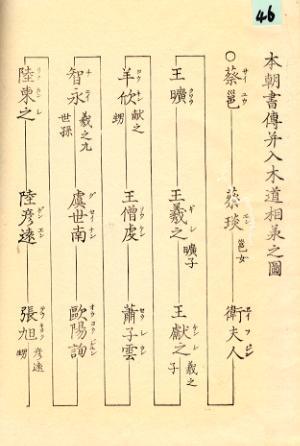 46
本朝書傳并入木道相承之圖
○蔡邕 蔡琰 邕女 衛夫人
王曠 王羲之 曠子 王獻之 羲之子
羊欣 獻之甥 王僧虔 蕭子雲
智永 羲之九世孫 虞世南 歐陽詢
陸柬之 陸彦遠 張旭 彦遠甥